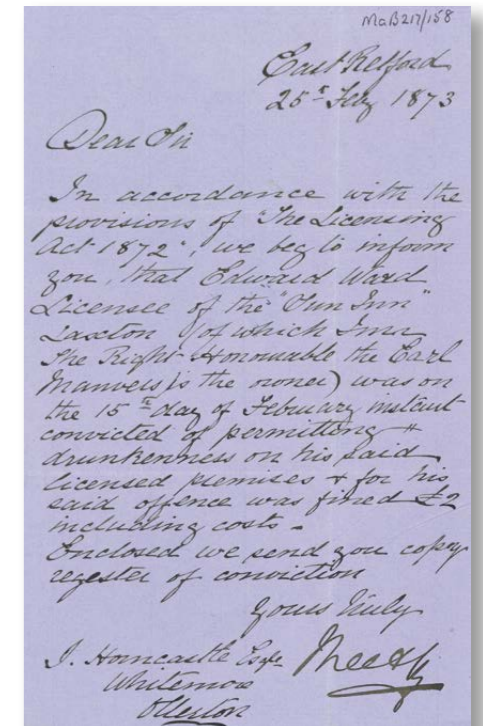 MaB217/158
East Retford
25th Feby 1873
Dear Sir
In accordance with the
provisions of "The Licensing
Act 1872", we beg to inform
you, that Edward Ward
Licensee of the
Laxton (of which Inn
The Right Honourable the Earl
Manvers is the owner) was on
the 15th day of February instant
convicted of permitting
drunkenness on his said
licensed premises + for his
said offence was fined £2
including costs -
Enclosed we send you copy
register of conviction
Yours truly
J. Horncastle Esqr
Whitemoor
Ollerton